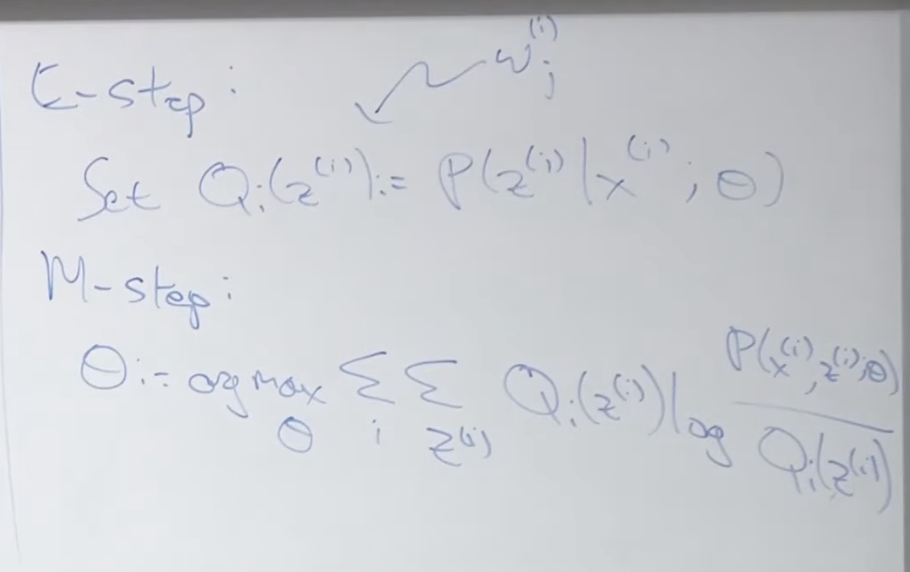 E-step: w_j^{(i)}
Set Q_i(z^{(i)}) := P(z^{(i)} | x^{(i)}; θ)
M-step:
θ := argmax_θ Σ_i Σ_{z^{(i)}} Q_i(z^{(i)}) log \frac{P(x^{(i)}, z^{(i)}; θ)}{Q_i(z^{(i)})}